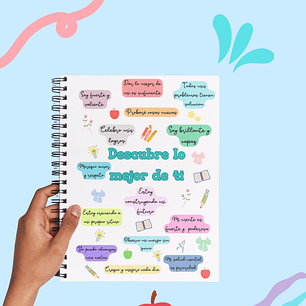 Doy lo mejor de
mi es suficiente
Todos mis
problemas tienen
solución
Soy fuerte y
valiente
Probaré cosas nuevas
Celebro mis
logros
Soy brillante y
capaz
Descubre lo
mejor de ti
Merezco amor
y respeto
Estoy
construyendo mi
futuro
Estoy creciendo a
mi propio ritmo
Mi mente es
fuerte y poderosa
Yo puedo alcanzar
mis metas
Mi salud mental
es prioridad
Crezco y mejoro cada día